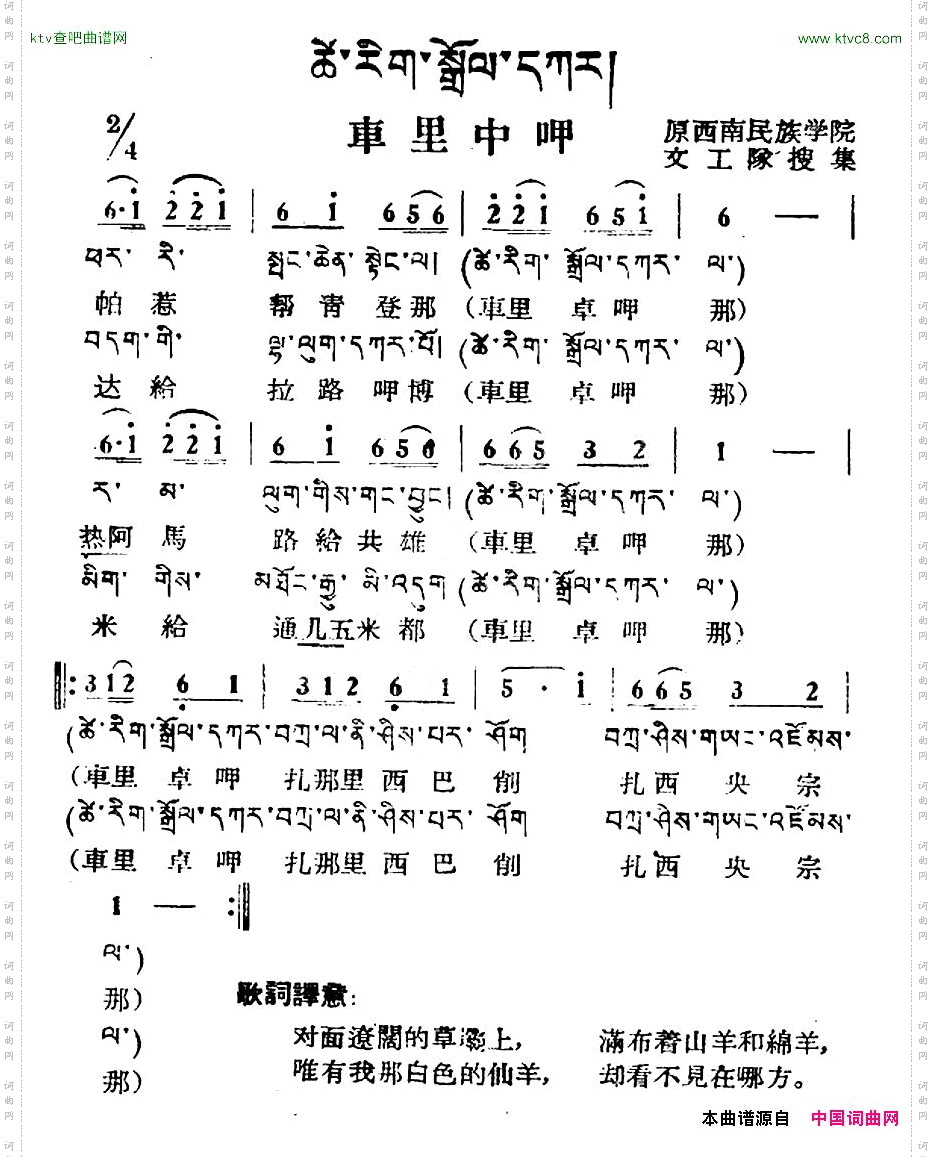 ktv查吧曲谱网 www.ktvc8.com
ཚེ་རིག་སྒྲོལ་དཀར།
2/4 車里中呷 原西南民族学院
文工隊搜集
6·i 2 2 i | 6 i 6 5 6 | 2 2 i 6 5 i | 6 — |
ཕར་ རི་ སྤང་ཆེན་སྟེང་ལ། (ཚེ་རིག་སྒྲོལ་དཀར་ ལ་)
帕惹 帮青登那 (車里卓呷 那)
བདག་གི་ ལྷ་ལུག་དཀར་པོ། (ཚེ་རིག་སྒྲོལ་དཀར་ ལ་)
达給 拉路呷博 (車里卓呷 那)
6·i 2 2 i | 6 i 6 5 6 | 6 6 5 3 2 | 1 — |
ར་ མ་ ལུག་གིས་གང་བྱུང། (ཚེ་རིག་སྒྲོལ་དཀར་ ལ་)
热阿馬 路給共雄 (車里卓呷 那)
མིག་ གིས་ མཐོང་རྒྱུ་མི་འདུག (ཚེ་རིག་སྒྲོལ་དཀར་ ལ་)
米給 通几五米都 (車里卓呷 那)
‖: 3 1 2 6 1 | 3 1 2 6 1 | 5 · i | 6 6 5 3 2 |
(ཚེ་རིག་སྒྲོལ་དཀར་བཀྲ་ལ་ནི་ཤིས་པར་ཤོག བཀྲ་ཤིས་གཡང་འཛོམས་
(車里卓呷扎那里西巴削 扎西央宗
(ཚེ་རིག་སྒྲོལ་དཀར་བཀྲ་ལ་ནི་ཤིས་པར་ཤོག བཀྲ་ཤིས་གཡང་འཛོམས་
(車里卓呷扎那里西巴削 扎西央宗
1 — :‖
ལ་)
那)
ལ་)
那)
歌詞譯意:
对面遼闊的草灞上, 滿布着山羊和綿羊,
唯有我那白色的仙羊, 却看不見在哪方。
本曲谱源自 中国词曲网